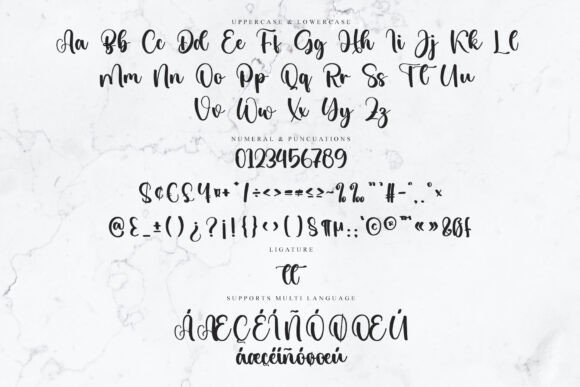 UPPERCASE & LOWERCASE
Aa Bb Cc Dd Ee Ff Gg Hh Ii Jj Kk Ll
Mm Nn Oo Pp Qq Rr Ss Tt Uu
Vv Ww Xx Yy Zz
NUMERAL & PUNCUATIONS
0123456789
$¢€£¥¤+*/÷<>=≠≤≥~‰"'#-
@&_±()¿?¡!{}‹›()§¶µ:;©®™«»
LIGATURE
tt
SUPPORTS MULTI LANGUAGE
ÁÆÇÉÍÑÓØŒÚ
áæçéíñóøœú